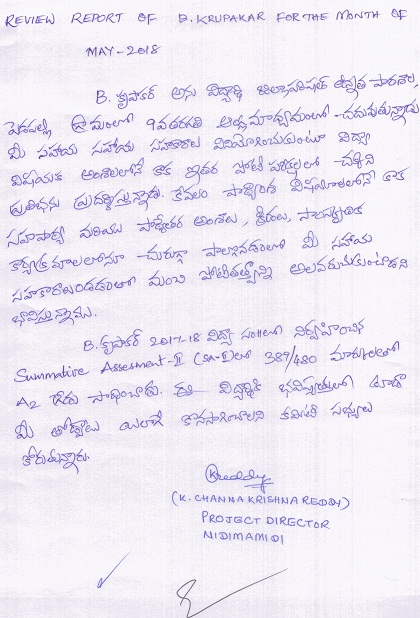 REVIEW REPORT OF B. KRUPAKAR FOR THE MONTH OF
MAY-2018
B. కృపాకర్ అను విద్యార్థి జిల్లాపరిషత్ ఉన్నత పాఠశాల,
పెదపల్లి గ్రామంలో 9వతరగతి ఆంగ్లమాధ్యమంలో చదువుతున్నాడు
మీ సహాయ సహాయ సహకారాల వినియోగించుకుంటూ విద్యా
విషయక అంశాలలోనే కాక ఇతర పోటీ పరీక్షల్లో చక్కని
ప్రతిభను ప్రదర్శిస్తున్నాడు. కేవలం పాఠ్యాంశ విషయాలలోనే కాక
సహపాఠ్య మరియు పాఠ్యేతర అంశాలు, క్రీడలు, సాంస్కృతిక
కార్యక్రమాలలోనూ చురుగ్గా పాల్గొనడంలో మీ సహాయ
సహకారాలుండడంతో మంచి పోటీతత్వాన్ని అలవరుచుకుంటాడని
భావిస్తున్నాము.
B. కృపాకర్ 2017-18 విద్యా సం॥లో నిర్వహించిన
Summative Assesment-II (SA-II)లో 389/480 మార్కులతో
A2 గ్రేడు సాధించాడు. ఈ విద్యార్థికి భవిష్యత్తులో కూడా
మీ తోడ్పాటు యిలాగే కొనసాగించాలని కమిటీ సభ్యులు
కోరుతున్నారు.
(K. CHANNA KRISHNA REDDY)
PROJECT DIRECTOR
NIDIMAMIDI